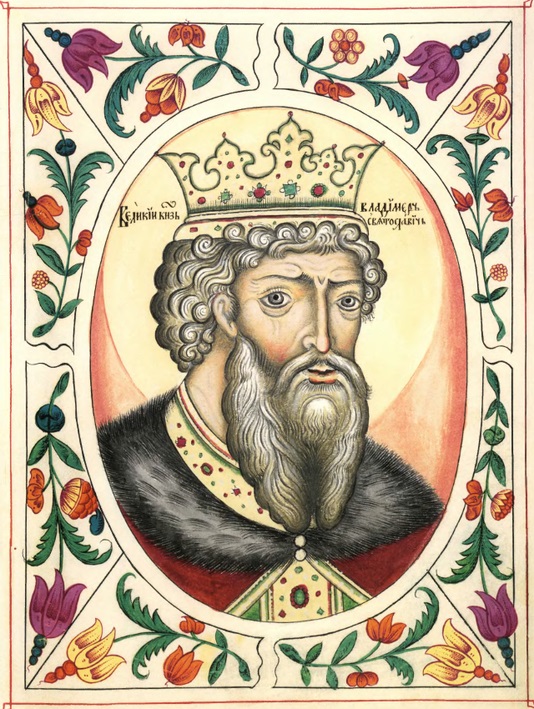 Великіи кнзь
владимеръ
свѧтославичь